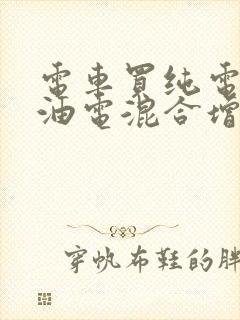 電車買純電
油電混合增
穿帆布鞋的胖